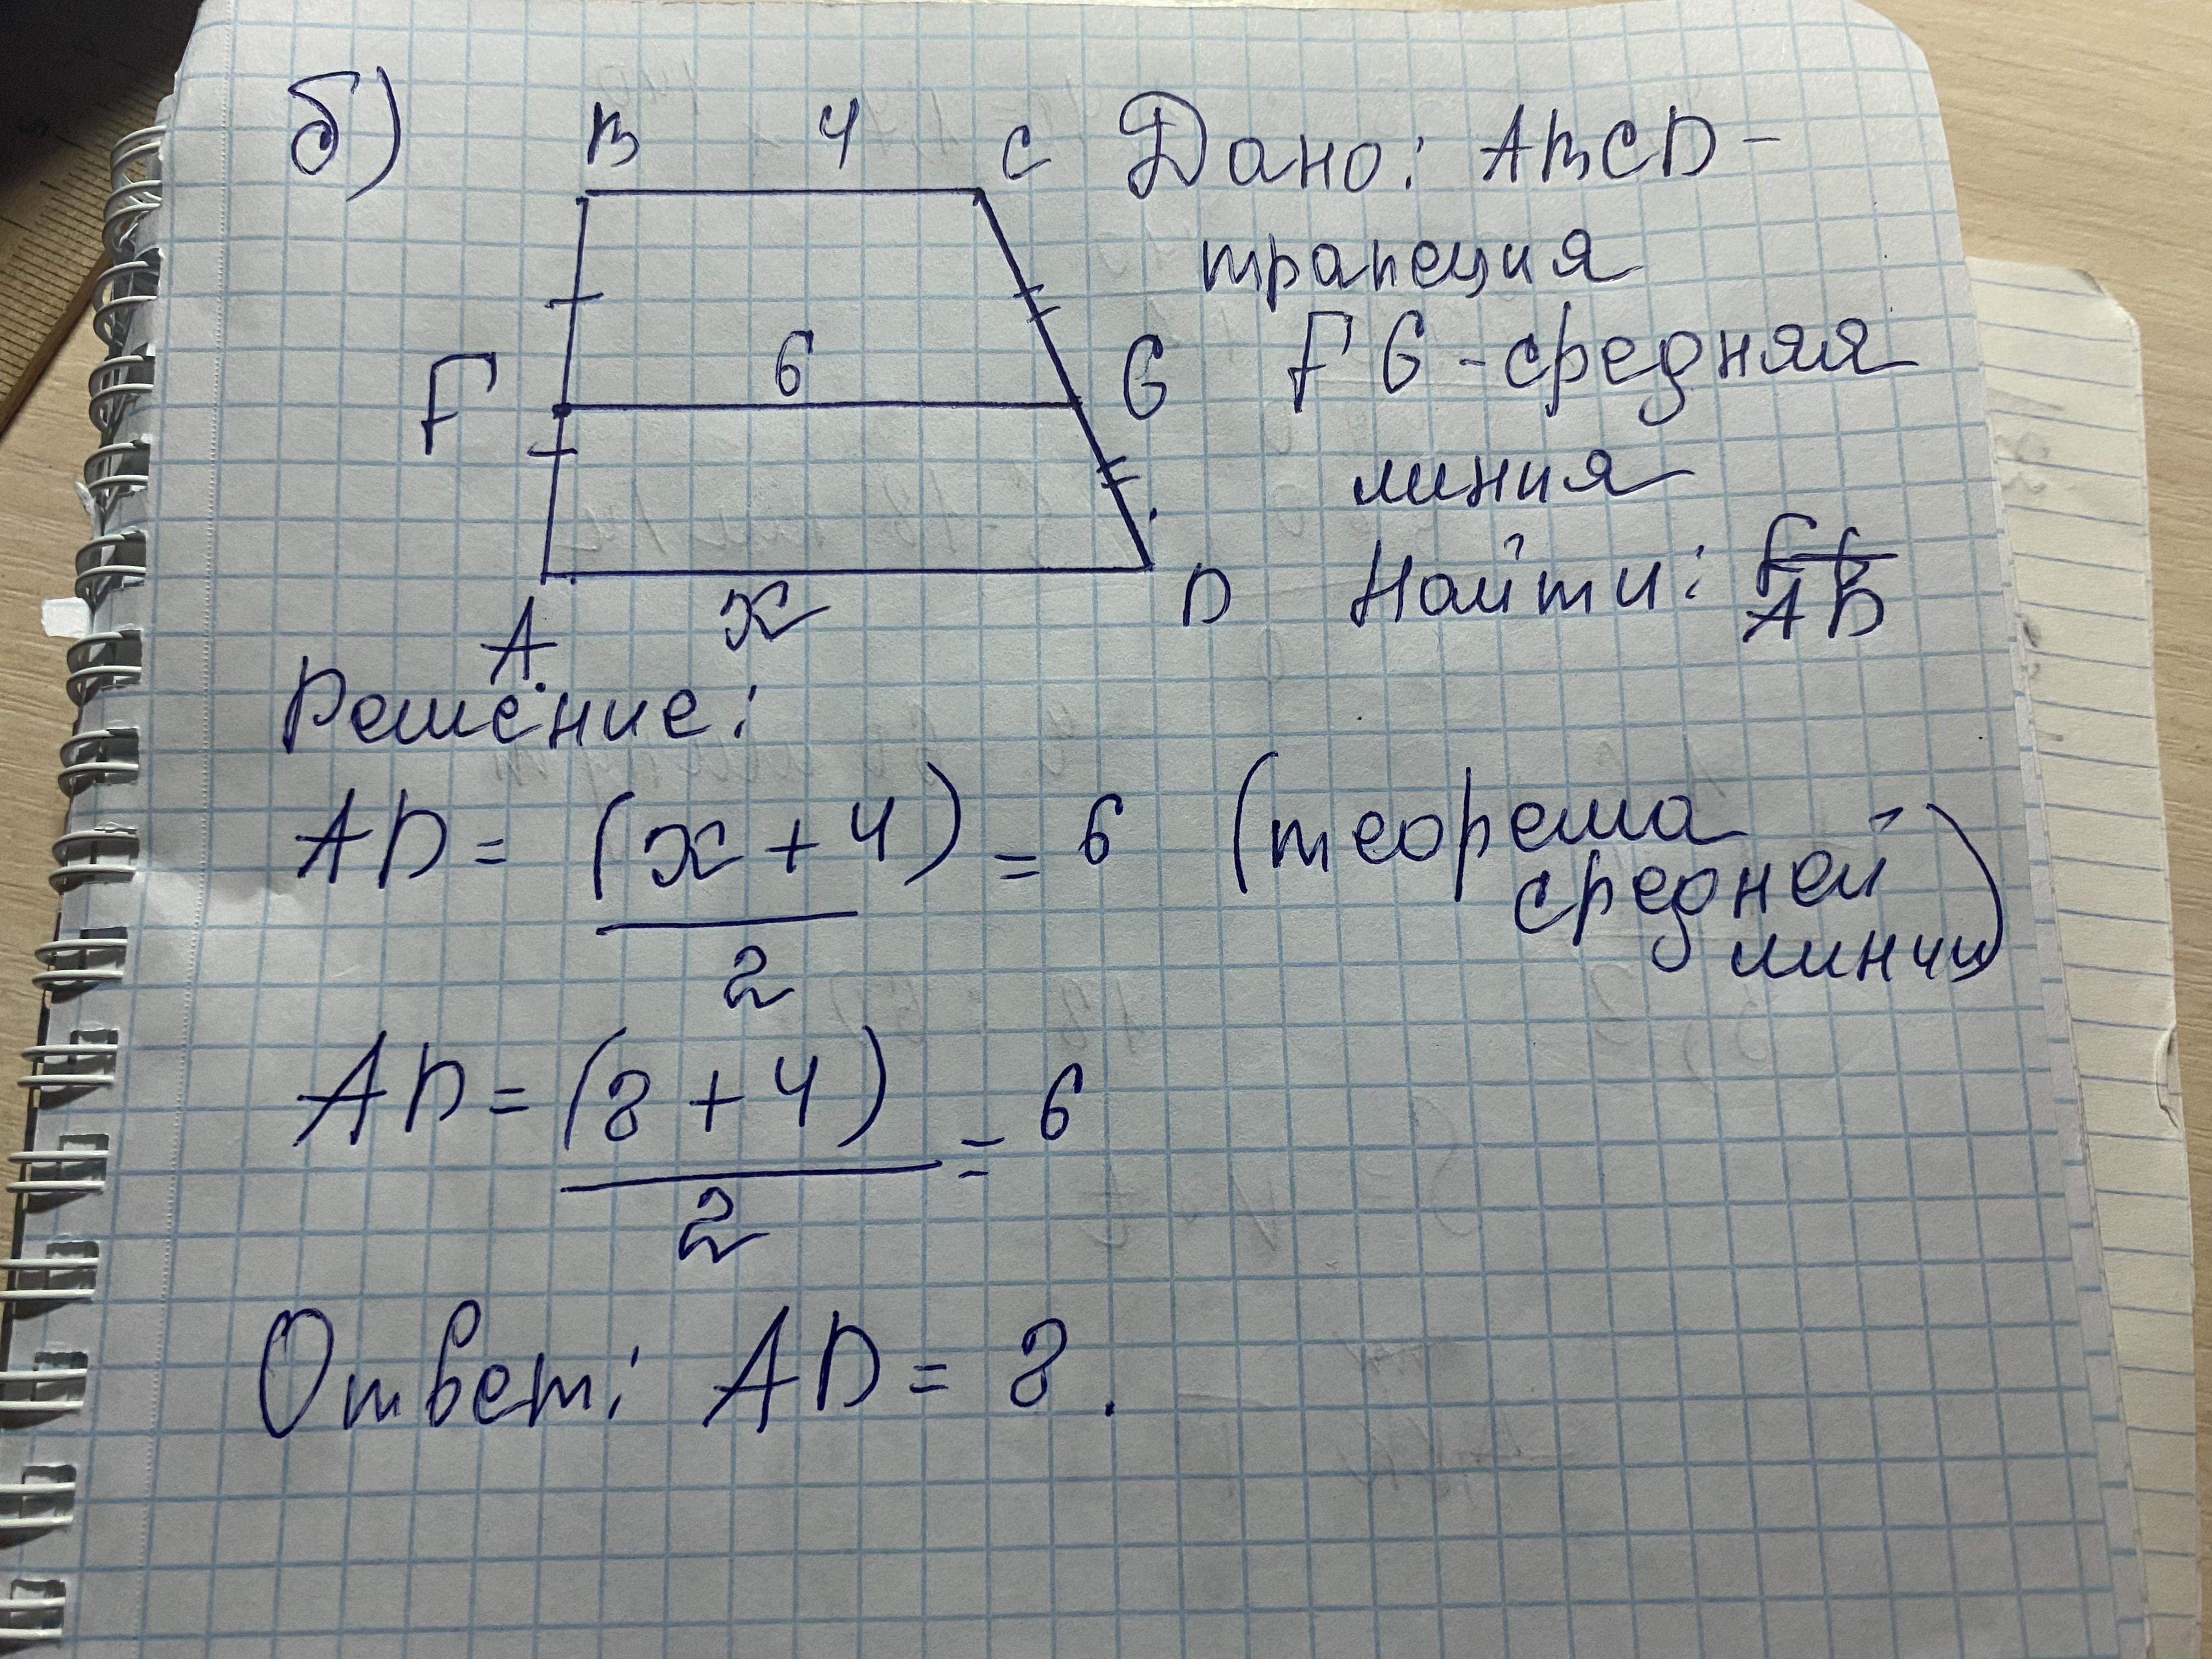 б) B 4 C Дано: ABCD -
трапеция
F 6 G FG - средняя
линия
A x D Найти: AD
Решение:
AD = (x + 4) / 2 = 6 (теорема
средней
линии)
AD = (8 + 4) / 2 = 6
Ответ: AD = 8.